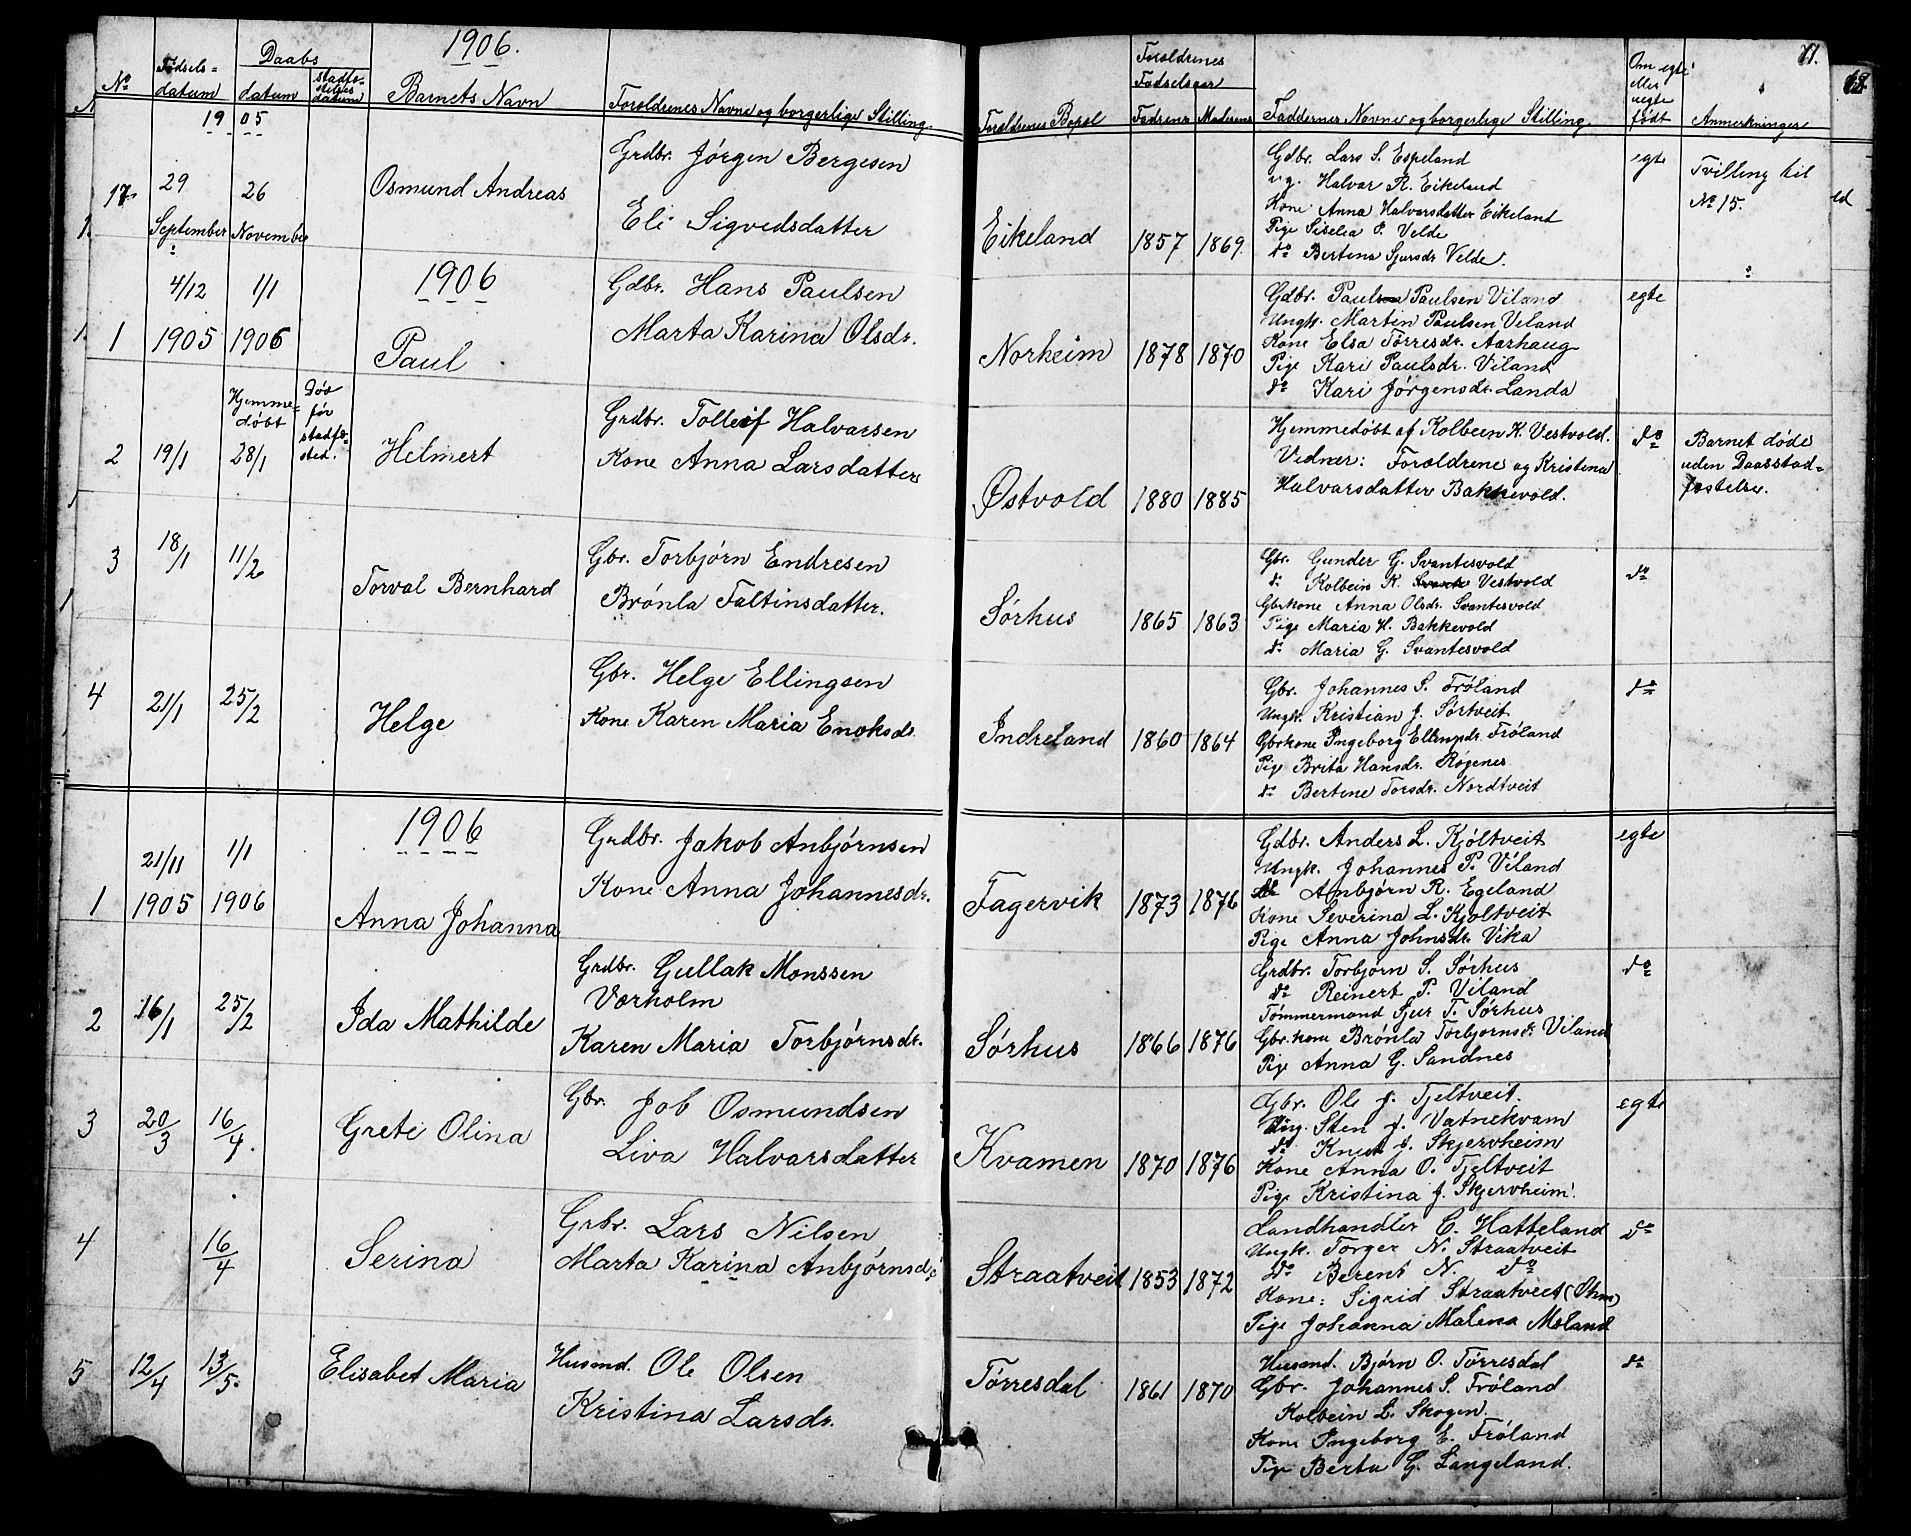 1906.
Daabs
Fødsels=
stadfæ-
stelses
No datum datum datum Barnets Navn Forældrenes Navne og borgerlige Stilling.
1905
17 29 September 26 November Osmund Andreas
Grdbr. Jørgen Bergesen
Eli Sigvedsdatter
1906
1 4/12 1905 1/1 1906 Paul
Gdbr. Hans Paulsen
Marta Karina Olsdr.
2 19/1 Hjemme=
døbt
28/1
Død
før
stadfæ-
sted.
Helmert
Grdbr. Tolleif Halvarsen
Kone Anna Larsdatter
3 18/1 11/2 Torval Bernhard
Gbr. Torbjørn Endresen
Brønla Faltinsdatter.
4 21/1 25/2 Helge
Gbr. Helge Ellingsen
Kone Karen Maria Enoksdr.
1906
1 21/11 1905 1/1 1906 Anna Johanna
Grdbr. Jakob Anbjørnsen
Kone Anna Johannesdr.
2 16/1 25/2 Ida Mathilde
Grdbr. Gullak Monssen
Vorholm
Karen Maria Torbjørnsdr.
3 20/3 16/4. Grete Olina
Gbr. Job Osmundsen
Liva Halvarsdatter
4 16/4 Serina
Grbr. Lars Nilsen
Marta Karina Anbjørnsd.
5 12/4 13/5. Elisabet Maria
Husmd. Ole Olsen
Kristina Larsdr.
11.
Forældrenes
Fødselsaar
Om egte
eller
uegte
født
Forældrenes Bopæl Fadrens Moderens Faddernes Navne og borgerlige Stilling Anmerkninger
Eikeland 1857 1869.
Gdbr. Lars S. Espeland
Halvar R. Eikeland
Kone Anna Halvarsdatter Eikeland
Pige Siselia P. Velde
do Bertena Sjursdr Velde.
egte
Tvilling til
No 15.
Norheim 1878 1870
Gdbr. Paulsen Paulsen Viland
Ungk. Martin Paulsen Veland
Kone Elsa Tørresdr. Aarhaug
Pige Kari Paulsdr. Viland
do Kari Jørgensdr. Landa
egte
Østvold 1880 1885
Hjemmedøbt af Kolbein K. Vestvold.
Vidner: Forældrene og Kristena
Halvarsdatter Bakkevold.
do
Barnet døde
uden Daabsstad=
fæstelse.
Sørhus 1865 1863
Gbr. Gunder G. Svantesvold
do Kolbein K. Vestvold
Gbrkone Anna Olsdr. Svantesvold
Pige Maria H. Bakkevold
do Maria G. Svantesvold
do
Indreland 1860 1864
Gbr. Johannes S. Frøland
Ungk. Kristian J. Sørtveit
Gbrkone Ingeborg Ellingdr. Frøland
Pige Brita Hansdr. Røgenes
do Bertine Torsdr. Nordtveit
do
Fagervik 1873 1876
Gdbr. Anders L. Kjøltveit
Ungk. Johannes P. Viland
do Anbjørn R. Egeland
Kone Severina L. Kjøltveit
Pige Anna Johnsdr. Vika
egte
Sørhus 1866 1876
Grdbr. Torbjørn S. Sørhus
do Reinert P. Viland
Tømmermand Sjur T. Sørhus
Gbr.kone Brønla Torbjornsdr. Viland
Pige Anna G. Sandnes
do
Kvamen 1870 1876
Gbr. Ole J. Tjeltveit.
Ung. Sten J. Vatnekvam
do Knud J. Skjervheim
Kone Anna O. Tjeltveit
Pige Kristina J. Skjervheim.
egte
Straatveit 1853 1872
Landhandler C. Hatteland
Ungk. Torger N. Straatveit
do Berent N. do
Kone: Sigrid Straatveit (Ohm)
Pige Johanna Malena Moland
do
Tørresdal 1861 1870
Husmd. Bjørn O. Tørresdal
Gbr. Johannes S. Frøland
Kolbein L. Skogen.
Kone Ingeborg E. Frøland
Pige Berta G. Langeland.
do